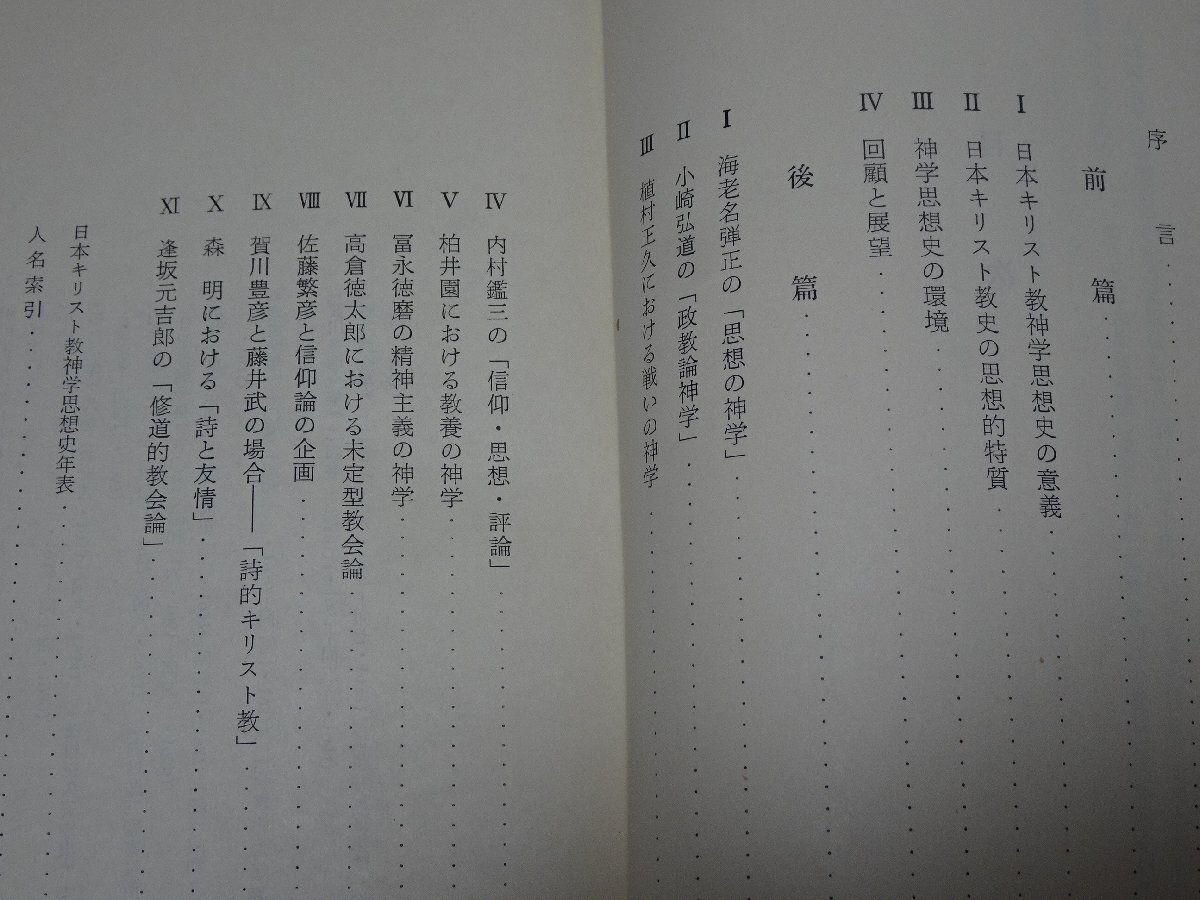 序言
前篇
Ⅰ 日本キリスト教神学思想史の意義
Ⅱ 日本キリスト教史の思想的特質
Ⅲ 神学思想史の環境
Ⅳ 回顧と展望
後篇
Ⅰ 海老名弾正の「思想の神学」
Ⅱ 小崎弘道の「政教論神学」
Ⅲ 植村正久における戦いの神学
Ⅳ 内村鑑三の「信仰・思想・評論」
Ⅴ 柏井園における教養の神学
Ⅵ 冨永徳磨の精神主義の神学
Ⅶ 高倉徳太郎における未定型教会論
Ⅷ 佐藤繁彦と信仰論の企画
Ⅸ 賀川豊彦と藤井武の場合――「詩的キリスト教」
Ⅹ 森 明における「詩と友情」
Ⅺ 逢坂元吉郎の「修道的教会論」
日本キリスト教神学思想史年表
人名索引